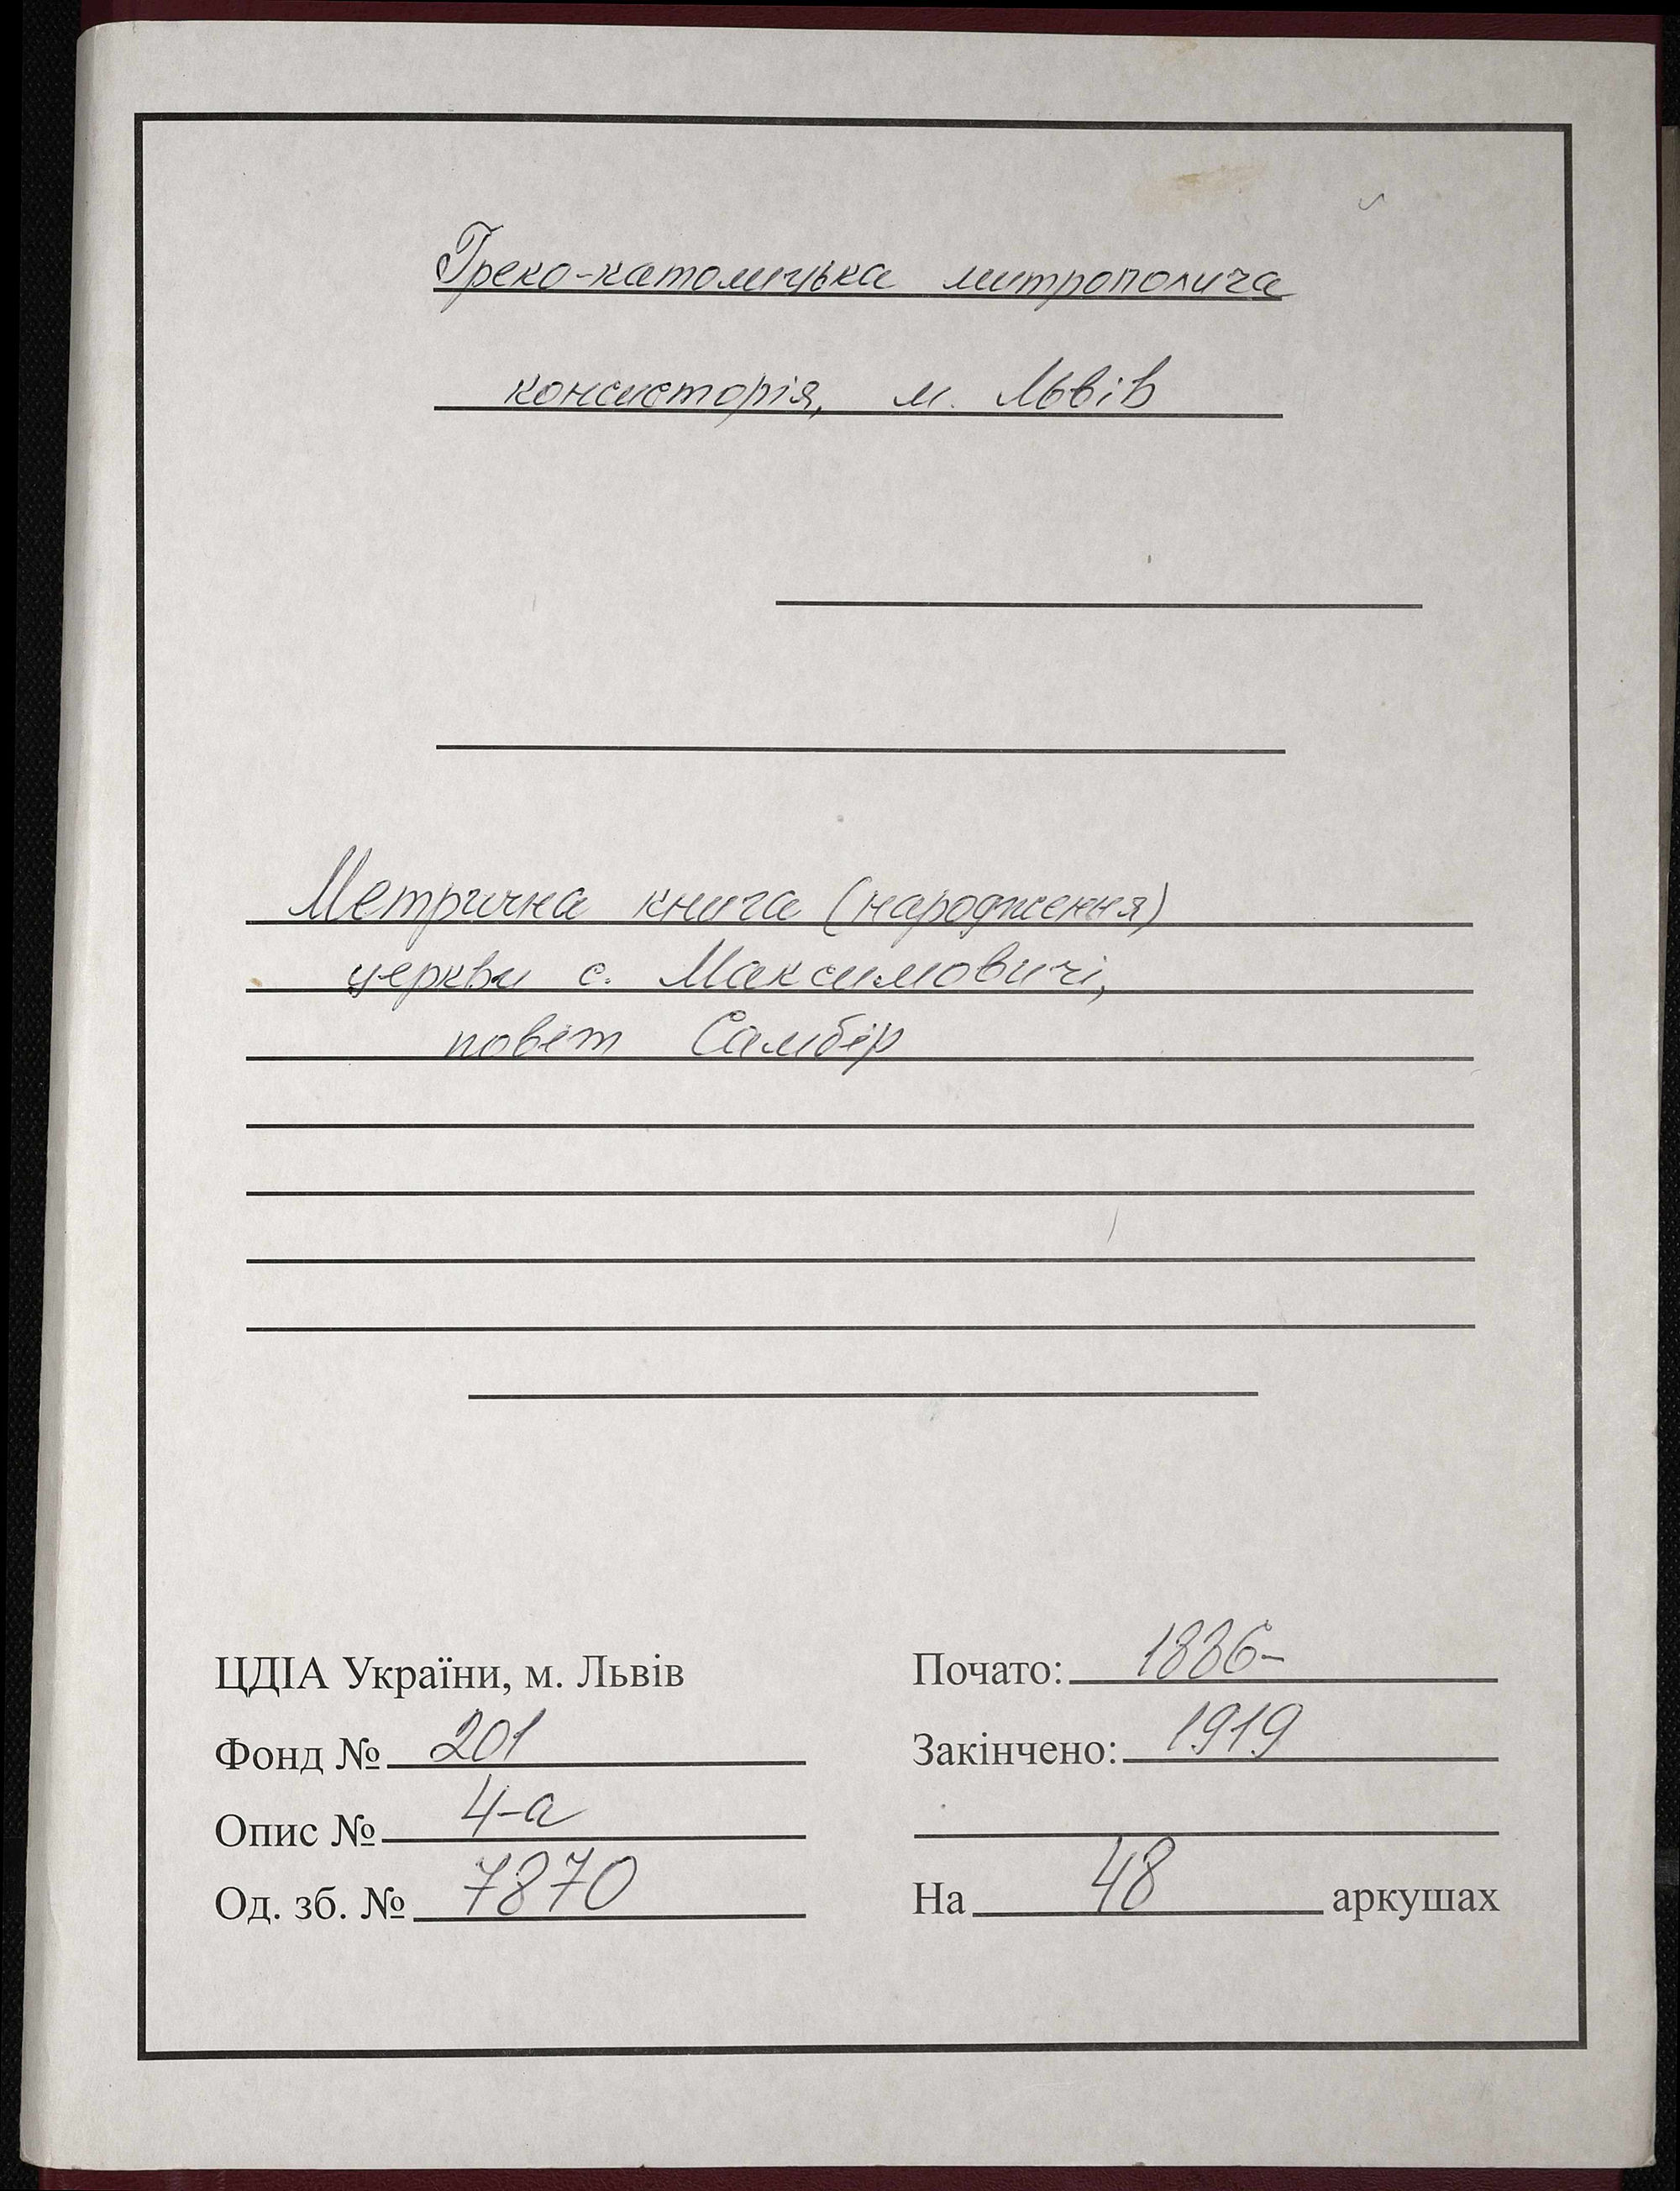 Греко-католицька митрополича
консисторія, м. Львів
Метрична книга (народження)
церкви с. Максимовичі,
повіт Самбір
ЦДІА України, м. Львів
Фонд № 201
Опис № 4-а
Од. зб. № 7870
Почато: 1886-
Закінчено: 1919
На 48 аркушах